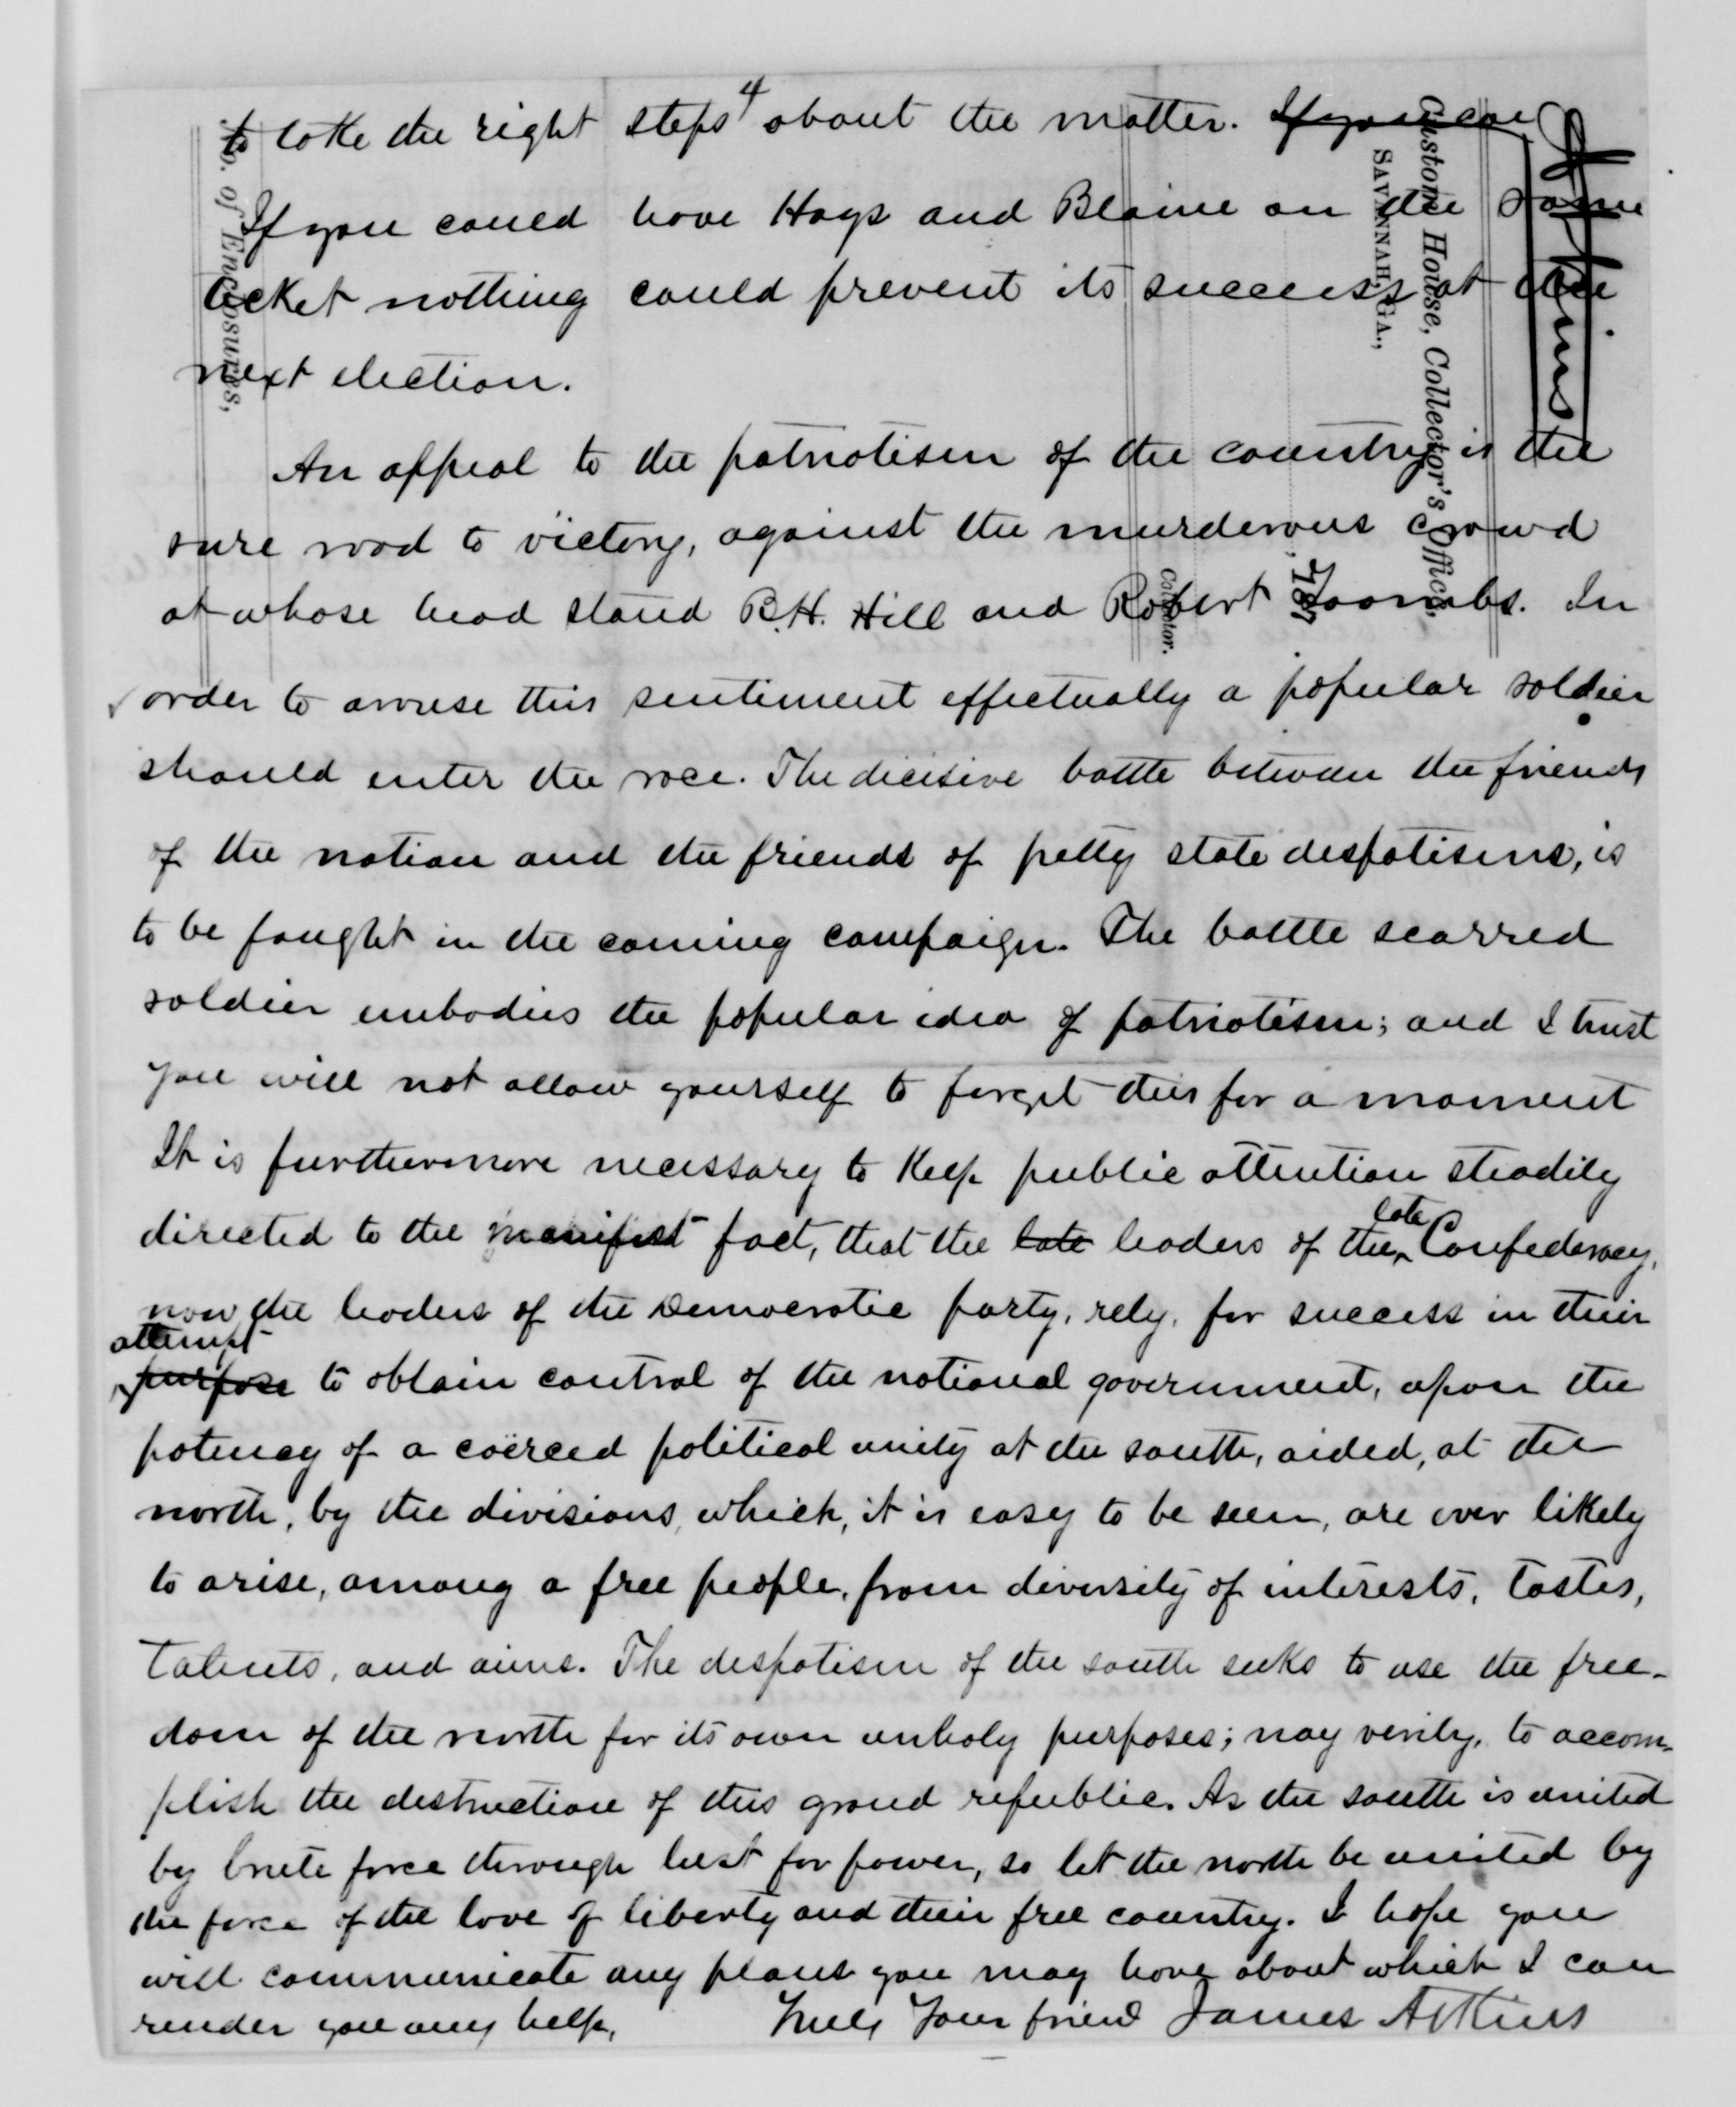 4
to take the right steps about the matter. If you can
If you could have Hays and Blaine on the same
ticket nothing could prevent its success at the
next election.
An appeal to the patriotism of the country is the
sure road to victory, against the murderous crowd
at whose head stand B.H. Hill and Robert Toombs. In
order to arouse this sentiment effectually a popular soldier
should enter the race. The decisive battle between the friends
of the nation and the friends of petty state despotisms, is
to be fought in the coming campaign. The battle scarred
soldier embodies the popular idea of patriotism; and I trust
you will not allow yourself to forget this for a moment
It is furthermore necessary to keep public attention steadily
directed to the manifest fact, that the late leaders of the late Confederacy,
now the leaders of the Democratic party, rely, for success in their
attempt
purpose to obtain control of the national government, upon the
potency of a coërced political unity at the south, aided, at the
north, by the divisions, which, it is easy to be seen, are ever likely
to arise, among a free people, from diversity of interests, tastes,
talents, and aims. The despotism of the south seeks to use the free-
dom of the north for its own unholy purposes; nay verily, to accom-
plish the destruction of this grand republic. As the south is united
by brute force through lust for power, so let the north be united by
the force of the love of liberty and their free country. I hope you
will communicate any plans you may have about which I can
render you any help,
Truly Your friend James Atkins
Custom House, Collector's Office,
SAVANNAH, GA.,
, 187
Collector.
No. of Enclosures,